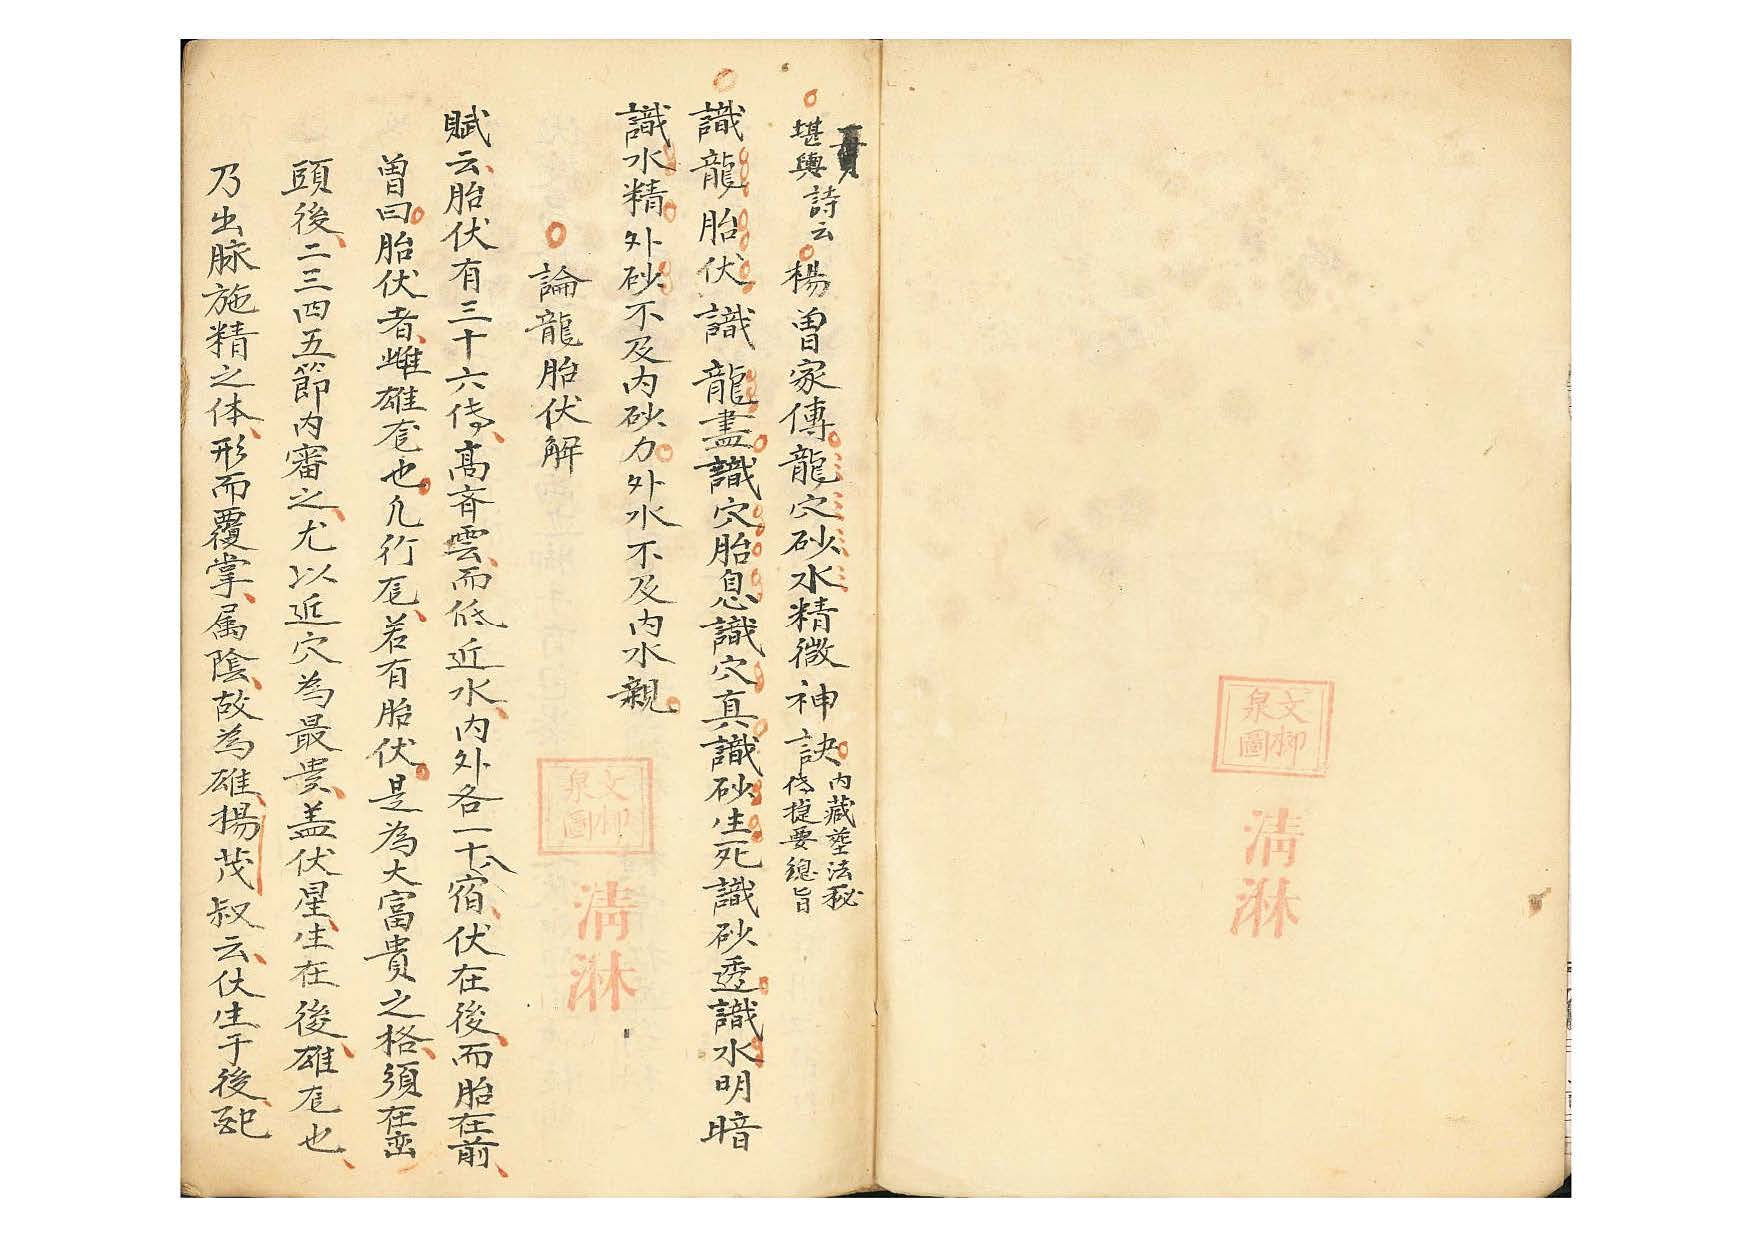 文柳
泉圖
清淋
堪輿詩云楊曾家傳龍穴砂水精微神訣內藏塋法秘
傳捷要總旨
識龍胎伏識龍龍盡識穴胎息識穴真識砂生死識砂透識水明暗
識水精外砂不及內砂力外水不及內水親
論龍胎伏解
文柳
泉圖
清淋
賦云胎伏有三十六傳高齊雲而低近水內外各一十八宿伏在後而胎在前
曾曰胎伏者雌雄竜也凡行竜若有胎伏是為大富貴之格須在巒
頭後二三四五節內審之尤以近穴為最貴盖伏星生在後雄竜也
乃出脉施精之体形而覆掌属陰故為雄揚茂叔云伏生于後